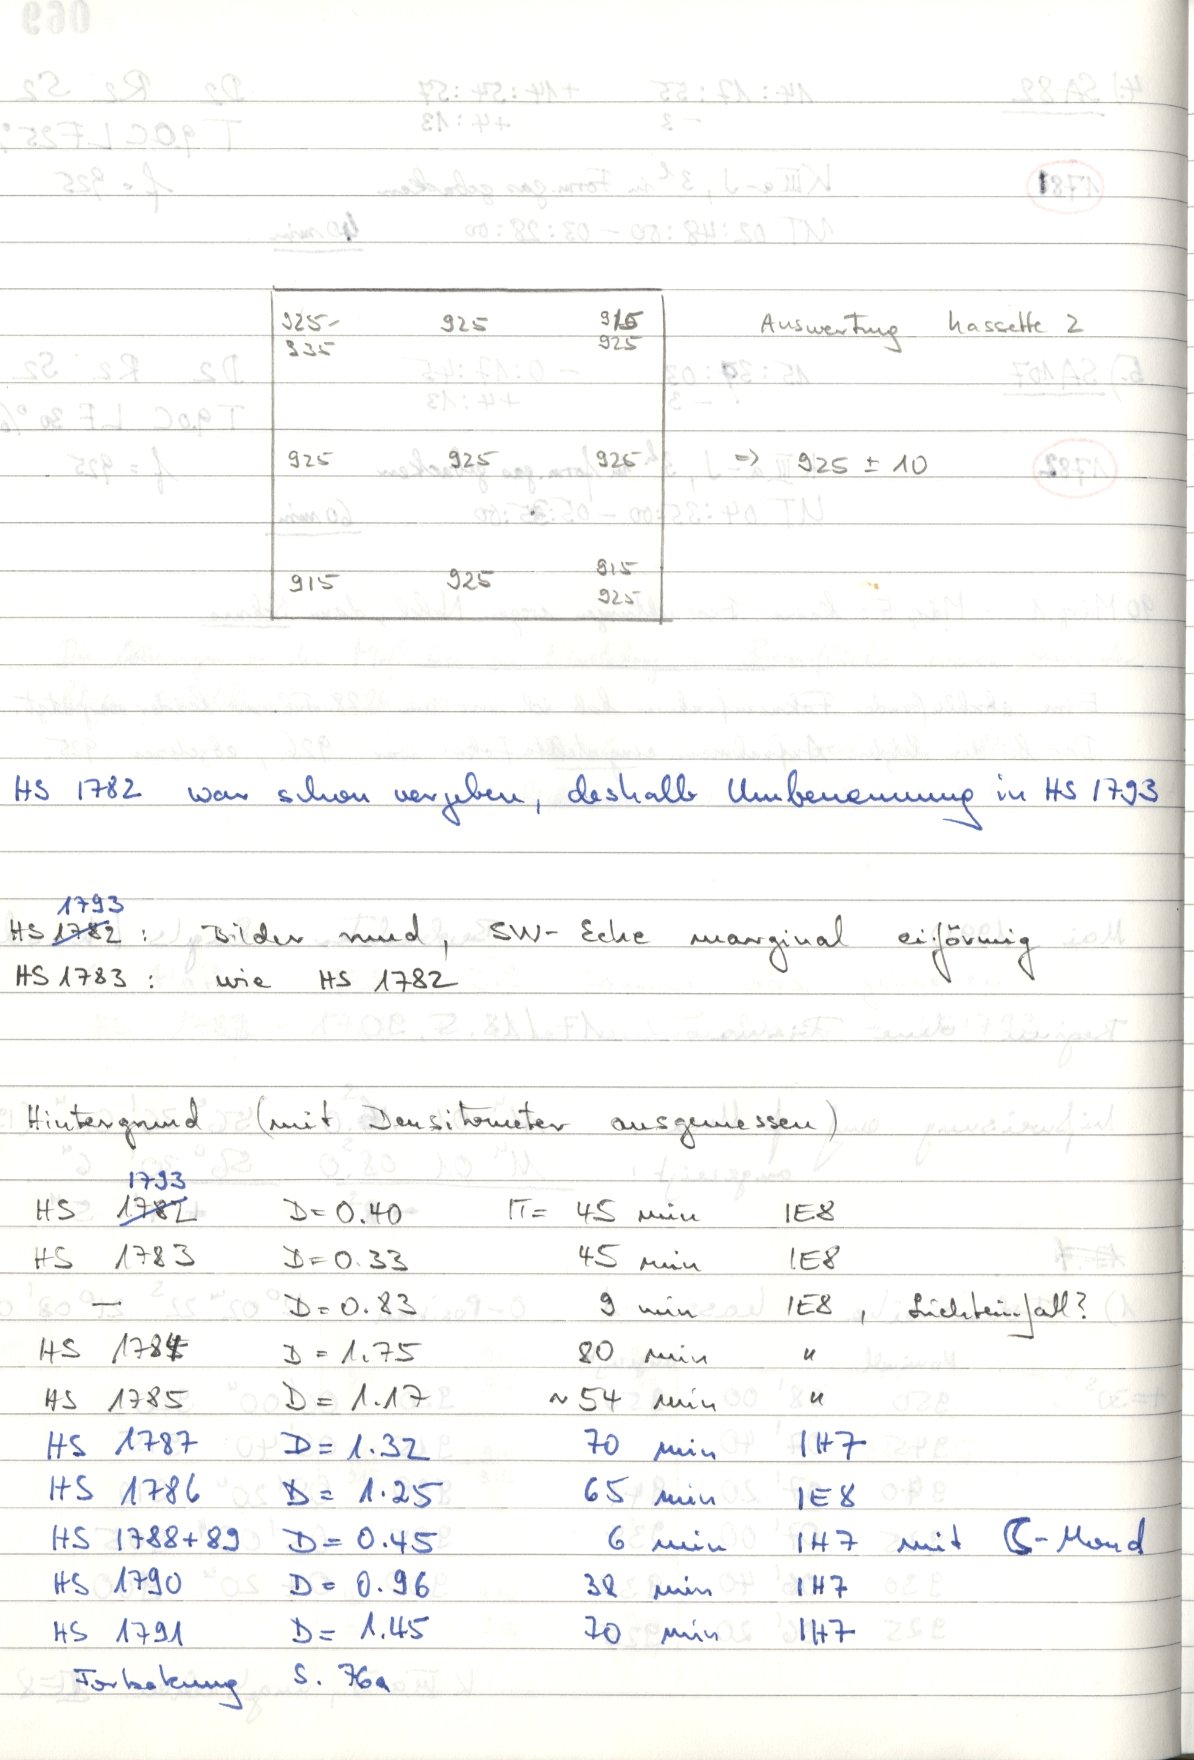 925- 925 915 Auswertung Kassette 2
935 925
925 925 925 => 925 ± 10
915 925 915
925
HS 1782 war schon vergeben, deshalb Umbenennung in HS 1793
1793
HS 1782 : Bilder rund, SW-Ecke marginal eiförmig
HS 1783 : wie HS 1782
Hintergrund (mit Densitometer ausgemessen)
1793
HS 1782 D=0.40 t= 45 min IE8
HS 1783 D=0.33 45 min IE8
— D=0.83 9 min IE8 , Lichteinfall?
HS 1784 D=1.75 80 min "
HS 1785 D=1.17 ~54 min "
HS 1787 D=1.32 70 min IH7
HS 1786 D=1.25 65 min IE8
HS 1788+89 D=0.45 6 min IH7 mit ☾-Mond
HS 1790 D=0.96 38 min IH7
HS 1791 D=1.45 70 min IH7
S. 76a